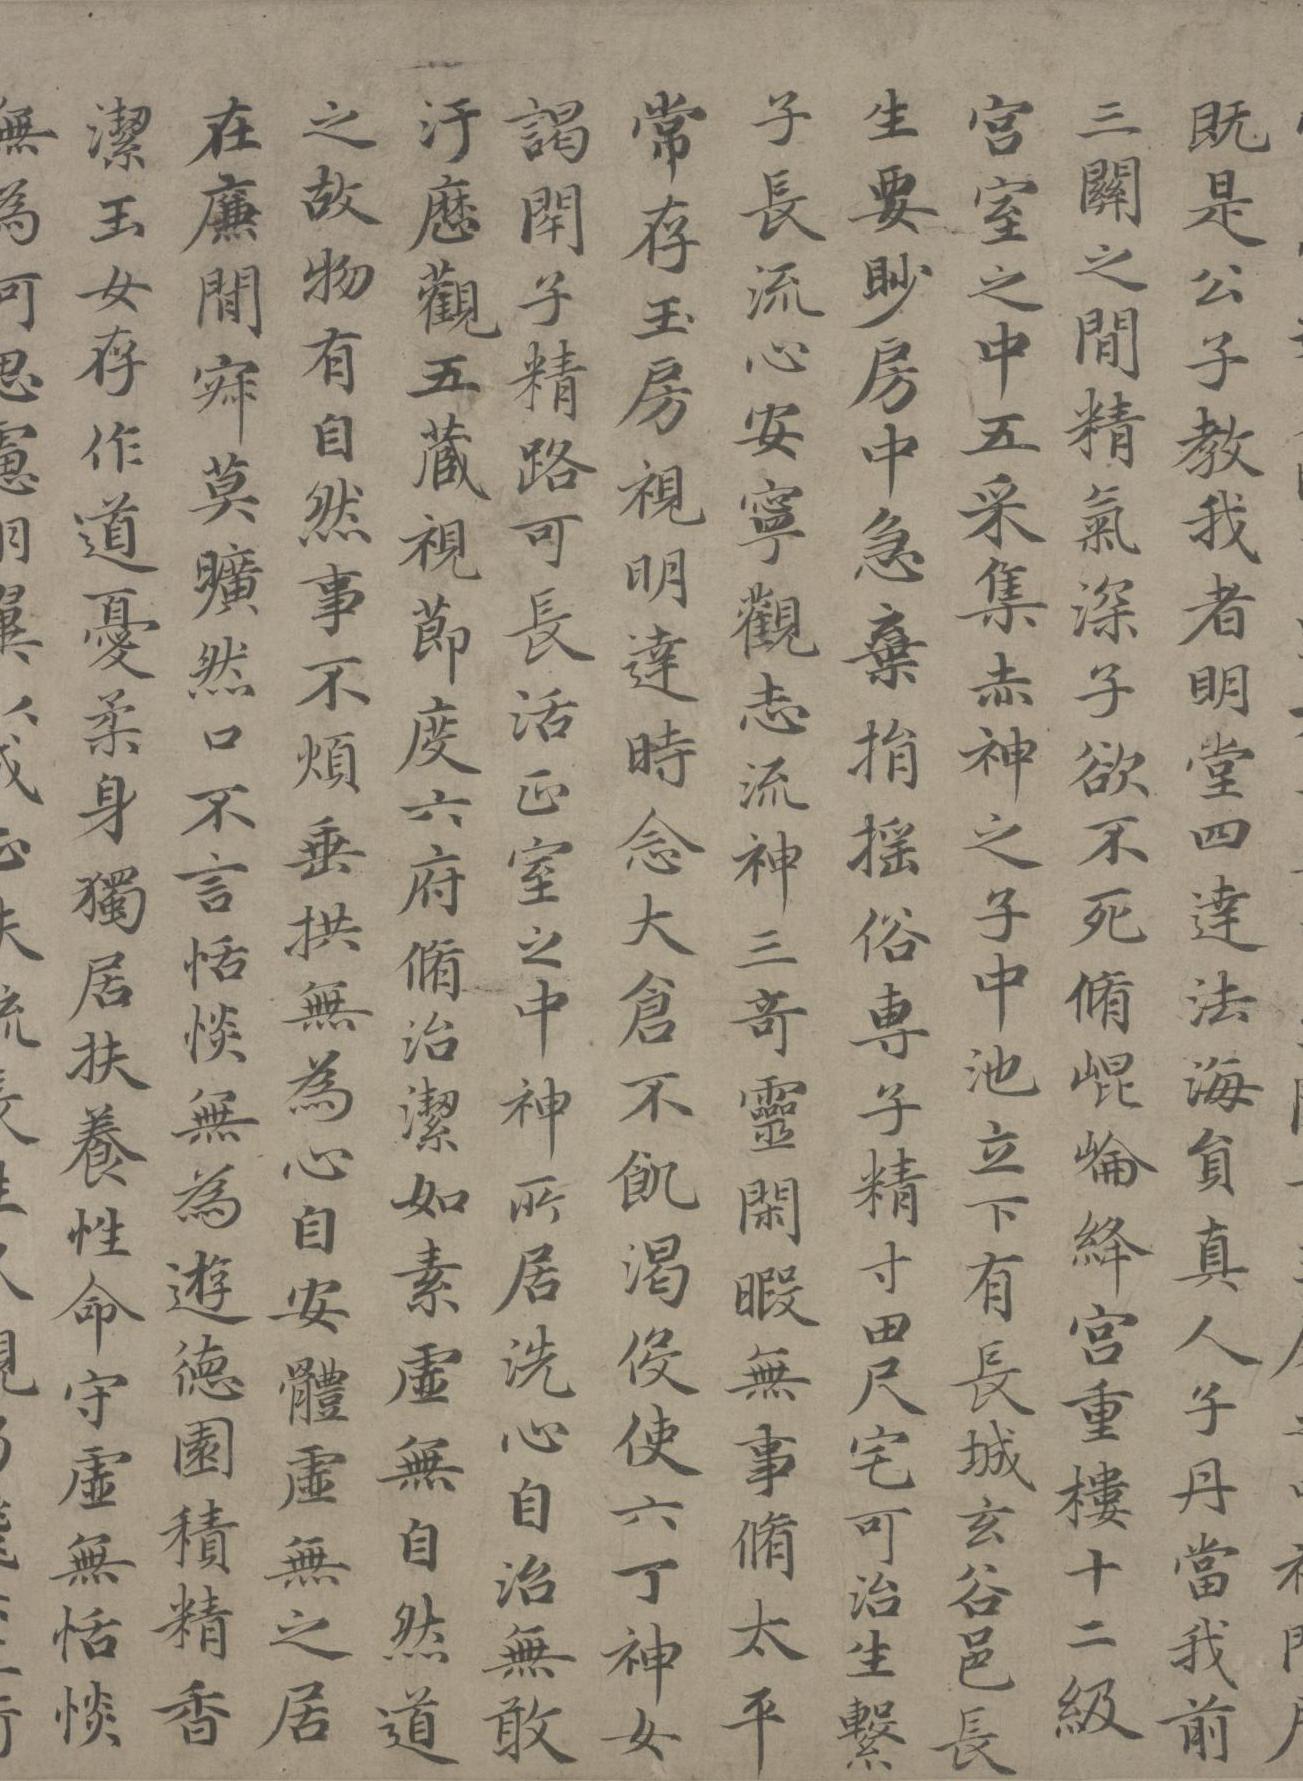 既是公子教我者明堂四達法海員真人子丹當我前
三關之間精氣深子欲不死脩崐崘絳宮重樓十二級
宮室之中五采集赤神之子中池立下有長城玄谷邑長
生要眇房中急棄捐搖俗専子精寸田尺宅可治生繫
子長流心安寧觀志流神三奇靈閑暇無事脩太平
常存玉房視明達時念大倉不飢渇伇使六丁神女
謁閇子精路可長活正室之中神所居洗心自治無敢
汙歴觀五藏視節度六府脩治潔如素虛無自然道
之故物有自然事不煩垂拱無為心自安體虛無之居
在廉間寂莫曠然口不言恬惔無為遊徳園積精香
潔玉女存作道憂柔身獨居扶養性命守虛無恬惔
無為何思慮